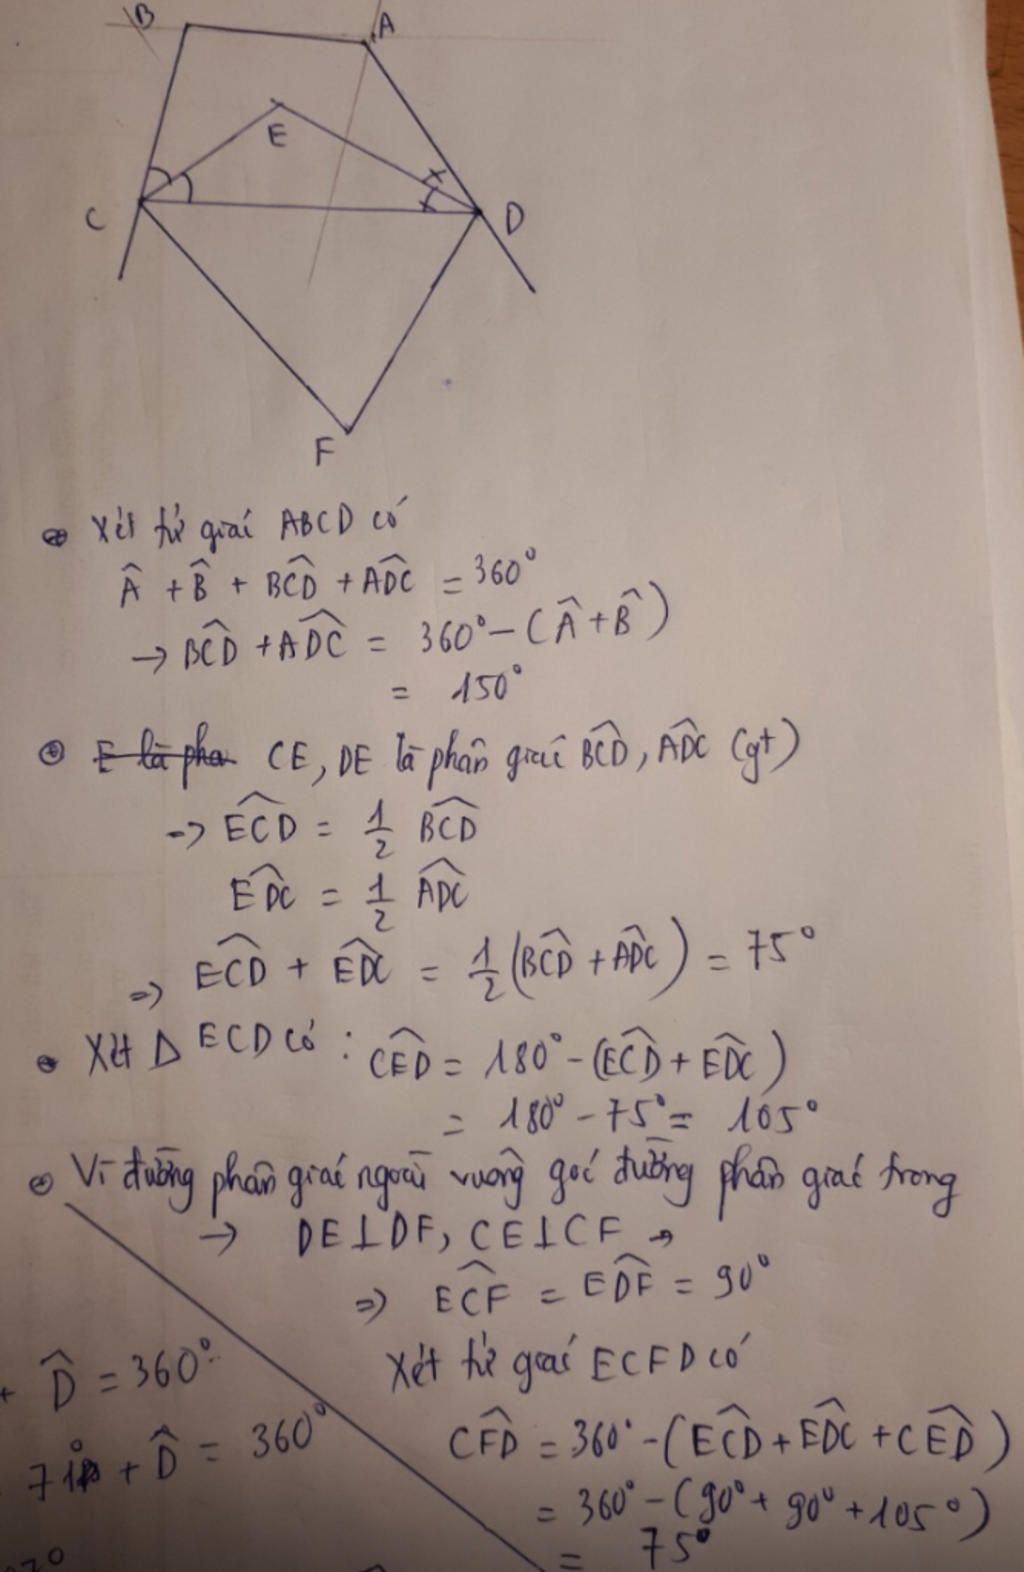 B
A
E
C
D
F
Xét tứ giác ABCD có
Â + B̂ + BĈD + AD̂C = 360°
→ BĈD + AD̂C = 360° - (Â + B̂)
= 150°
CE, DE là phân giác BĈD, AD̂C (gt)
→ EĈD = 1/2 BĈD
ED̂C = 1/2 AD̂C
=> EĈD + ED̂C = 1/2 (BĈD + AD̂C) = 75°
Xét Δ ECD có : CÊD = 180° - (EĈD + ED̂C)
= 180° - 75° = 105°
Vì đường phân giác ngoài vuông góc đường phân giác trong
→ DE⊥DF, CE⊥CF →
=> EĈF = ED̂F = 90°
Xét tứ giác ECFD có
+ D̂ = 360°
CF̂D = 360° - (EĈD + ED̂C + CÊD)
+ D̂ = 360°
= 360° - (90° + 90° + 105°)
= 75°